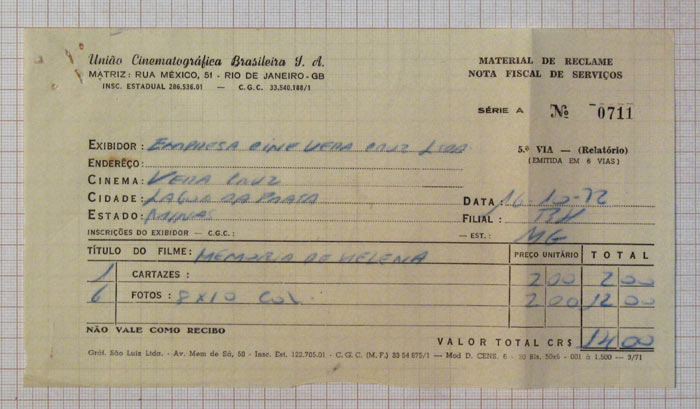 União Cinematográfica Brasileira S. A.
MATRIZ: RUA MÉXICO, 51 - RIO DE JANEIRO-GB
INSC. ESTADUAL 286.536.01 — C.G.C. 33.540.188/1
MATERIAL DE RECLAME
NOTA FISCAL DE SERVIÇOS
SÉRIE A Nº 0711
5.ª VIA — (Relatório)
(EMITIDA EM 6 VIAS)
EXIBIDOR: EMPRESA CINE VERA CRUZ LTDA
ENDEREÇO:
CINEMA: VERA CRUZ
CIDADE: LAGOA DA PRATA
DATA: 16-10-72
ESTADO: MINAS
FILIAL: BH
INSCRIÇÕES DO EXIBIDOR - C.G.C.: — EST.: MG
TÍTULO DO FILME: MEMORIA DE HELENA PREÇO UNITÁRIO TOTAL
1 CARTAZES: 2 00 2 00
6 FOTOS: 8x10 COL. 2 00 12 00
NÃO VALE COMO RECIBO
VALOR TOTAL CR$ 14 00
Gráf. São Luiz Ltda. - Av. Mem de Sá, 50 - Insc. Est. 122.705.01 - C.G.C. (M.F.) 33 54 875/1 — Mod D. CENS. 6 - 30 Bls. 50x6 - 001 à 1.500 — 3/71